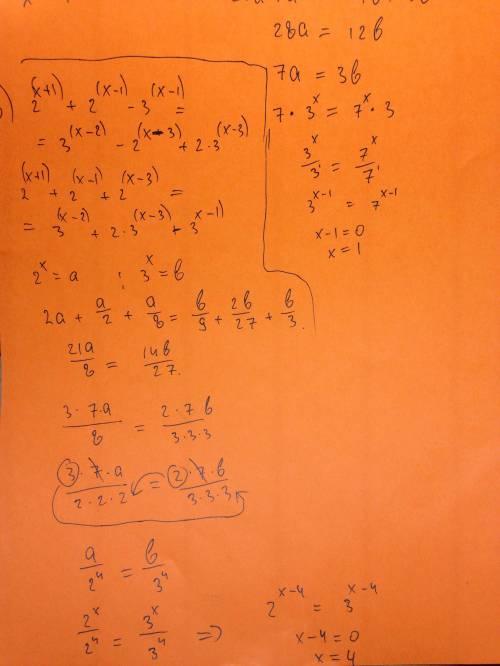 28a = 12b
7a = 3b
7 · 3^x = 7^x · 3
3^x/3^1 = 7^x/7^1
3^(x-1) = 7^(x-1)
x-1=0
x=1
2^(x+1) + 2^(x-1) - 3^(x-1) =
= 3^(x-2) - 2^(x-3) + 2·3^(x-3)
2^(x+1) + 2^(x-1) + 2^(x-3) =
= 3^(x-2) + 2·3^(x-3) + 3^(x-1)
2^x = a ; 3^x = b
2a + a/2 + a/8 = b/9 + 2b/27 + b/3.
21a/8 = 14b/27.
3·7·a/8 = 2·7b/3·3·3
3·7·a/2·2·2 = 2·7·b/3·3·3
a/2^4 = b/3^4
2^x/2^4 = 3^x/3^4 =>
2^(x-4) = 3^(x-4)
x-4=0
x=4